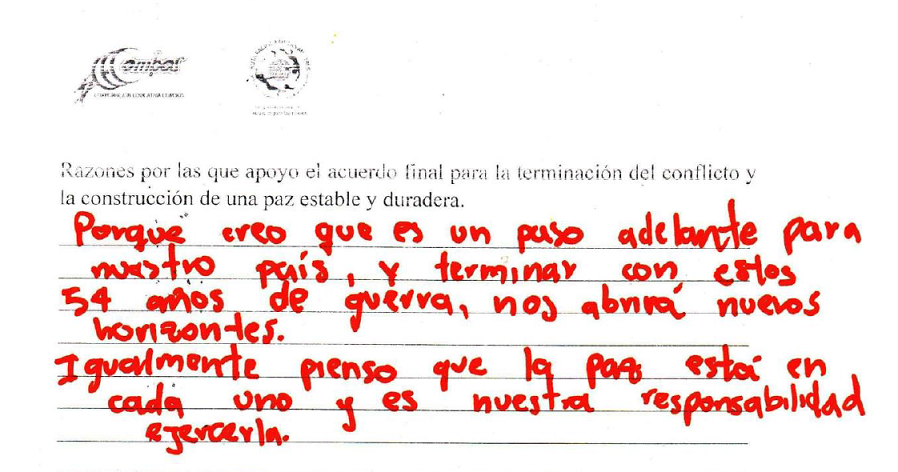 Combos
CORPORACIÓN EDUCATIVA COMBOS
Razones por las que apoyo el acuerdo final para la terminación del conflicto y
la construcción de una paz estable y duradera.
Porque creo que es un paso adelante para
nuestro país, y terminar con estos
54 años de guerra, nos abrirá nuevos
horizontes.
Igualmente pienso que la paz está en
cada uno y es nuestra responsabilidad
ejercerla.